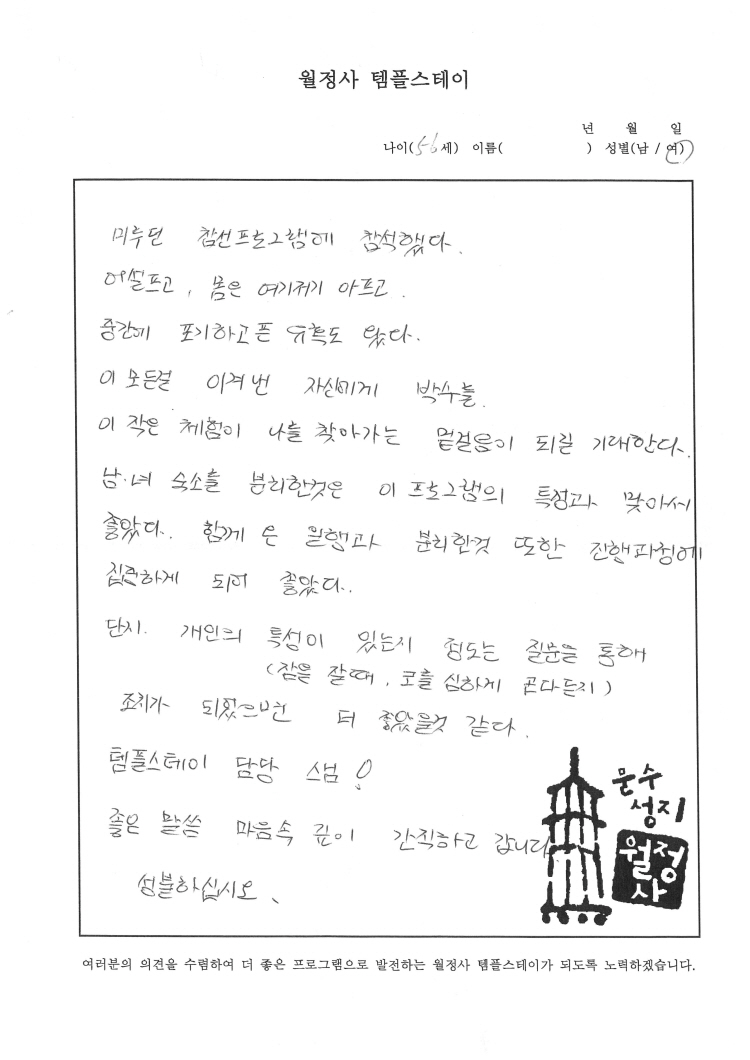 월정사 템플스테이
년 월 일
나이(56세) 이름( ) 성별(남 / 여)
미루던 참선프로그램에 참석했다.
어설프고, 몸은 여기저기 아프고.
중간에 포기하고픈 유혹도 왔다.
이 모든걸 이겨낸 자신에게 박수를.
이 작은 체험이 나를 찾아가는 밑걸음이 되길 기대한다.
남·녀 숙소를 분리한것은 이 프로그램의 특성과 맞아서
좋았다.. 함께 온 일행과 분리한것 또한 진행과정에
집중하게 되어 좋았다..
단지. 개인의 특성이 있는지 정도는 질문을 통해
(잠을 잘때, 코를 심하게 곤다든지)
조치가 되었으면 더 좋았을것 같다.
템플스테이 담당 스님!
좋은 말씀 마음속 깊이 간직하고 갑니다
성불하십시오.
문수
성지
월정
사
여러분의 의견을 수렴하여 더 좋은 프로그램으로 발전하는 월정사 템플스테이가 되도록 노력하겠습니다.